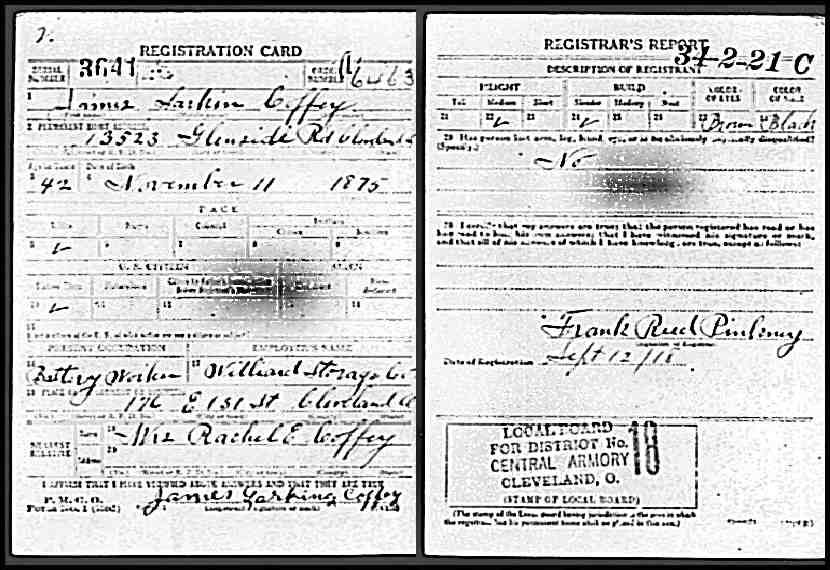 7.
REGISTRATION CARD
SERIAL NUMBER 3641 ORDER NUMBER
1 James Larkin Coffey
2 PERMANENT HOME ADDRESS
13523 Glenside Rd Cleveland
Age in Years Date of Birth
3 42 4 November 11 1875
RACE
White Negro Oriental Indian
Citizen
5 ✓ 6 7 8 9
U. S. CITIZEN ALIEN
Native Born Naturalized
10 ✓ 11 12 14
15
PRESENT OCCUPATION EMPLOYER'S NAME
16 Battery Worker 17 Williard Storage
18 PLACE OF
176 E 131 St Cleveland O
NEAREST RELATIVE Name 19 Mrs Rachel E Coffey
Address 20
I AFFIRM THAT I HAVE VERIFIED ABOVE ANSWERS AND THAT THEY ARE TRUE
P. M. G. O.
Form No. 1 James Larking Coffey
REGISTRAR'S REPORT
34-2-21-C
DESCRIPTION OF REGISTRANT
HEIGHT BUILD COLOR OF EYES COLOR OF HAIR
Tall Medium Short Slender Medium Stout
21 22 ✓ 23 24 ✓ 25 26 27 Brown 28 Black
29 Has person lost arm, leg, hand, eye, or is he obviously physically disqualified?
(Specify.)
No
30 I certify that my answers are true; that the person registered has read or has
had read to him his own answers; that I have witnessed his signature or mark,
and that all of his answers of which I have knowledge are true, except as follows:
Frank Reed Pinkney
Date of Registration Sept 12/18
LOCAL BOARD
FOR DISTRICT No. 18
CENTRAL ARMORY
CLEVELAND, O.
(STAMP OF LOCAL BOARD)
(The stamp of the Local Board having jurisdiction of the area in which
the registrant has his permanent home shall be placed in this box.)